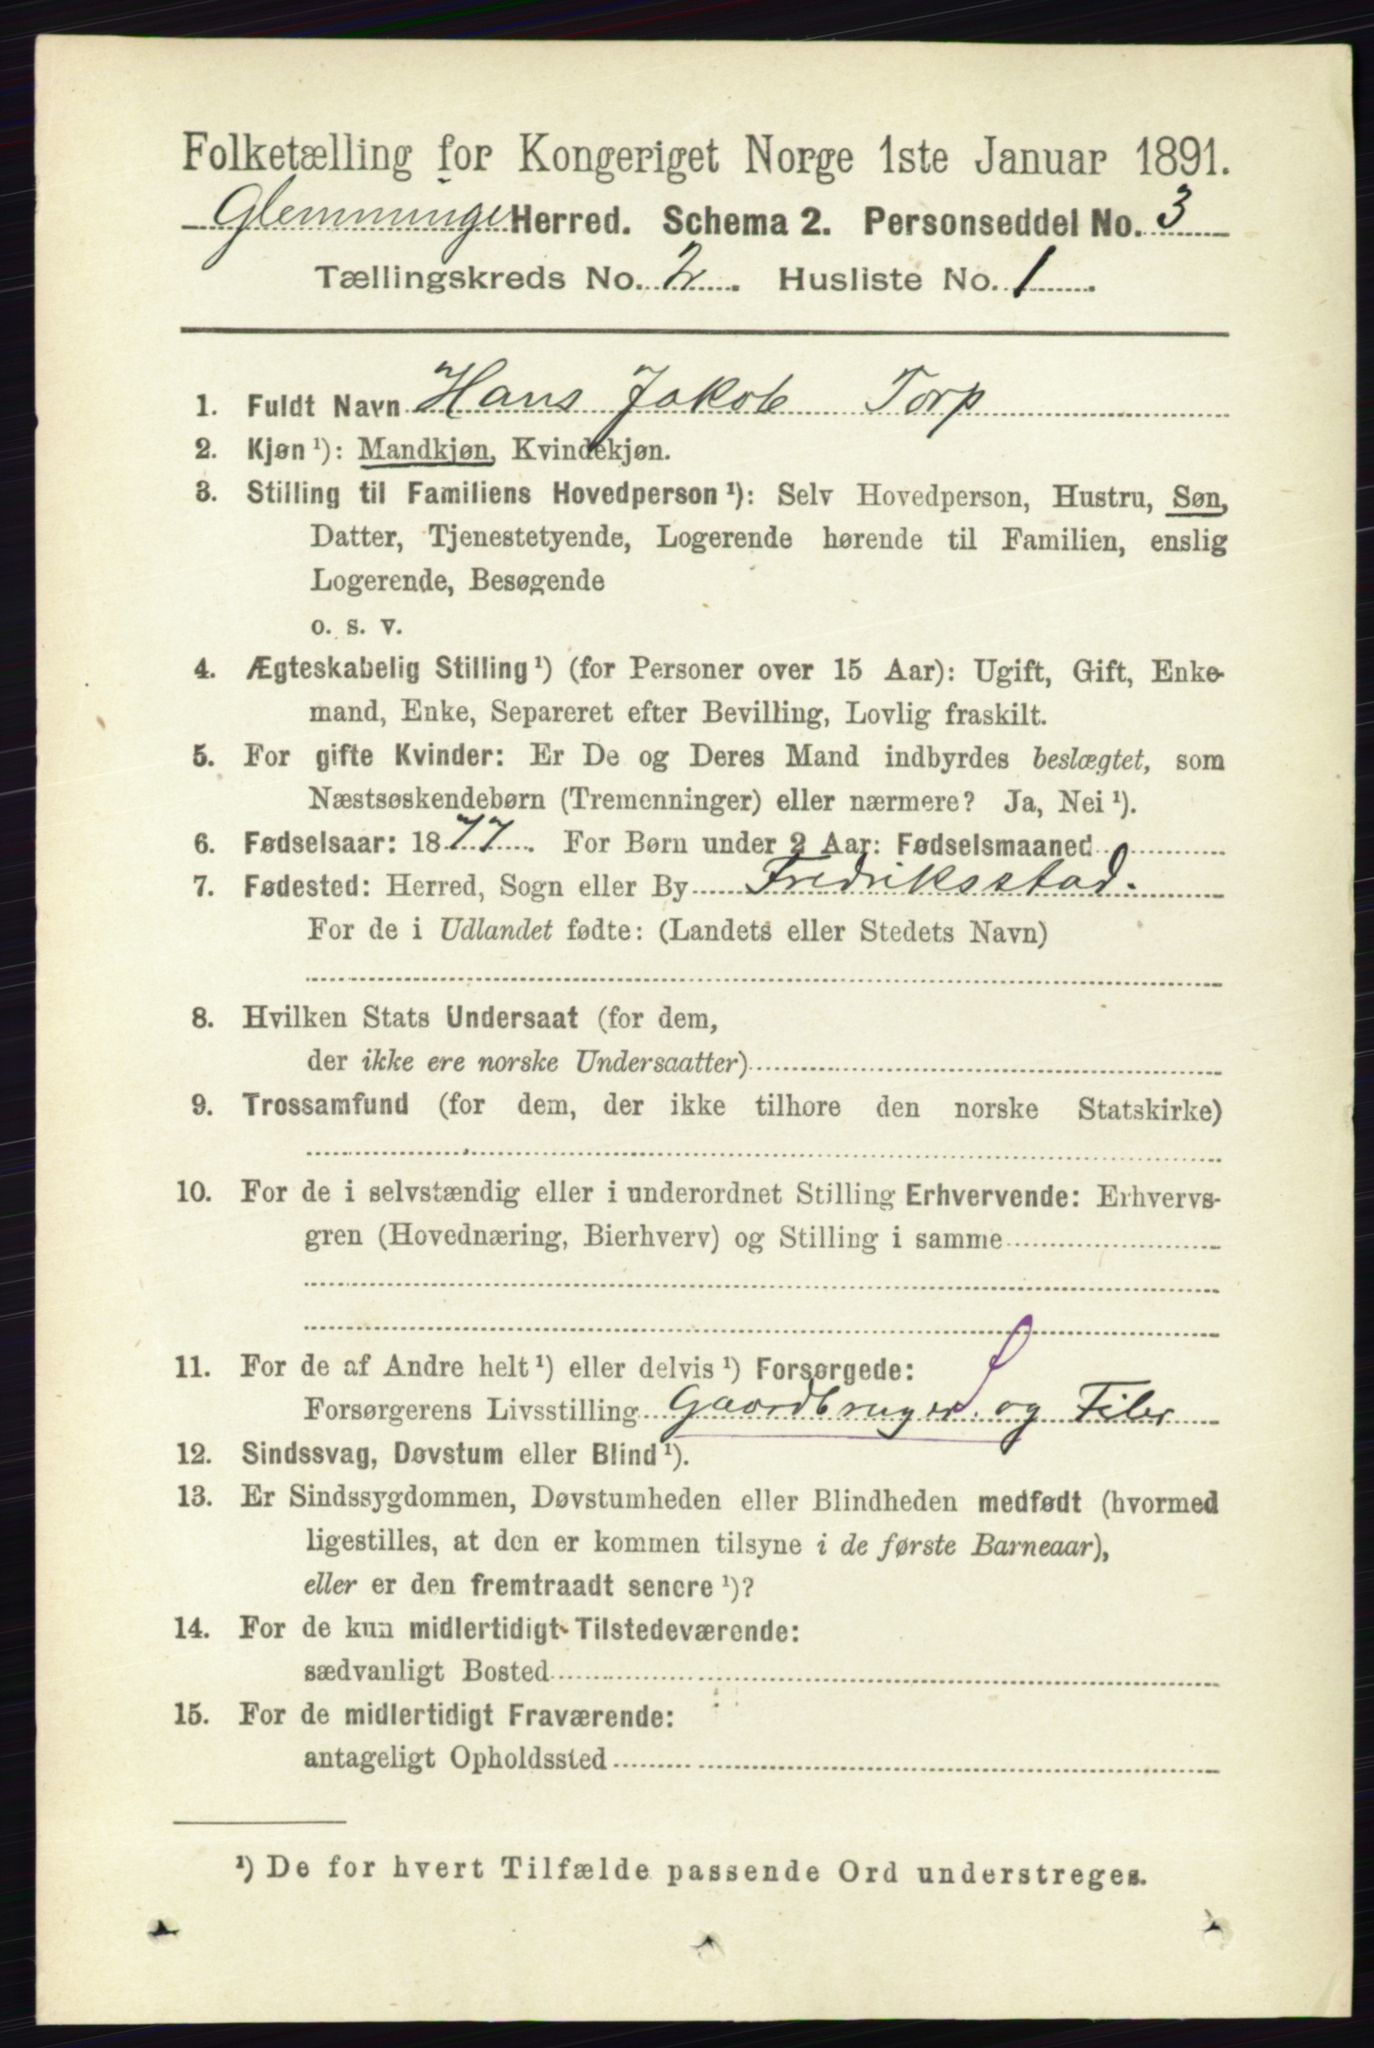 Folketælling for Kongeriget Norge 1ste Januar 1891.
Glemminge Herred. Schema 2. Personseddel No. 3
Tællingskreds No. 2. Husliste No. 1.
1. Fuldt Navn Hans Jakob Torp
2. Kjøn ¹): Mandkjøn, Kvindekjøn.
3. Stilling til Familiens Hovedperson ¹): Selv Hovedperson, Hustru, Søn,
Datter, Tjenestetyende, Logerende hørende til Familien, enslig
Logerende, Besøgende
o. s. v.
4. Ægteskabelig Stilling ¹) (for Personer over 15 Aar): Ugift, Gift, Enke-
mand, Enke, Separeret efter Bevilling, Lovlig fraskilt.
5. For gifte Kvinder: Er De og Deres Mand indbyrdes beslægtet, som
Næstsøskendebørn (Tremenninger) eller nærmere? Ja, Nei ¹).
6. Fødselsaar: 1877. For Børn under 2 Aar: Fødselsmaaned
7. Fødested: Herred, Sogn eller By Fredriksstad.
For de i Udlandet fødte: (Landets eller Stedets Navn)
8. Hvilken Stats Undersaat (for dem,
der ikke ere norske Undersaatter)
9. Trossamfund (for dem, der ikke tilhøre den norske Statskirke)
10. For de i selvstændig eller i underordnet Stilling Erhvervende: Erhvervs-
gren (Hovednæring, Bierhverv) og Stilling i samme
11. For de af Andre helt ¹) eller delvis ¹) Forsørgede:
Forsørgerens Livsstilling Gaardbruger og Filer
12. Sindssvag, Døvstum eller Blind ¹).
13. Er Sindssygdommen, Døvstumheden eller Blindheden medfødt (hvormed
ligestilles, at den er kommen tilsyne i de første Barneaar),
eller er den fremtraadt senere ¹)?
14. For de kun midlertidigt Tilstedeværende:
sædvanligt Bosted
15. For de midlertidigt Fraværende:
antageligt Opholdssted
¹) De for hvert Tilfælde passende Ord understreges.